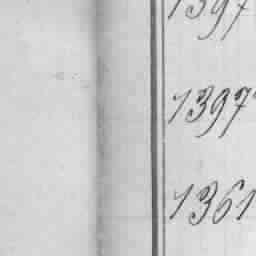 1397
1397
1361